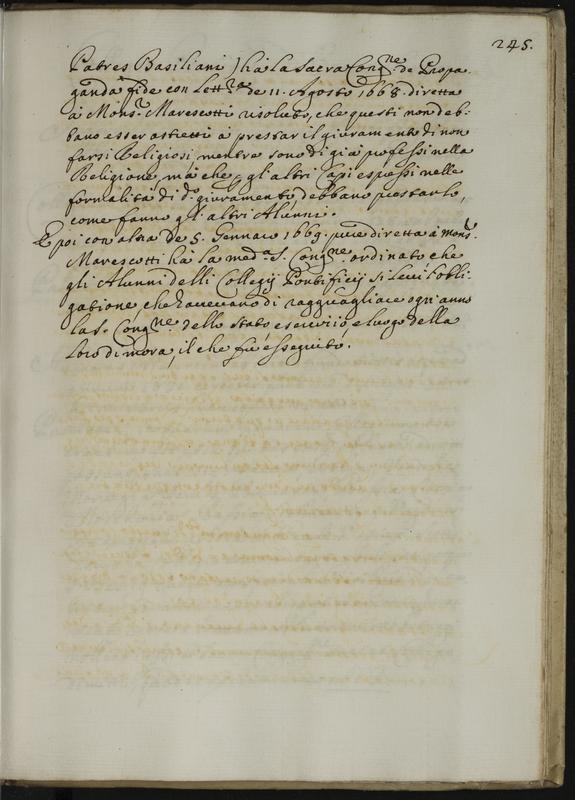 245.
Patres Basiliani) hà la Sacra Congne. de Propa-
ganda fide con Lettra de 11. Agosto 1668. diretta
à Monsr. Marescotti risoluto, che questi non deb-
bano esser astretti à prestar il giuramento di non
farsi Religiosi, mentre sono di già professi nella
Religione, mà che gl'altri Capi espressi nelle
formalità di do. giuramento debbano prestarlo,
come fanno gl'altri Alunni.
E poi con altra de 5. Gennaro 1669. pure diretta à Monsr.
Marescotti hà la meda. S. Congne. ordinato che
gli Alunni delli Collegij Pontificij si levi l'obli-
gatione, che havevano di ragguagliare ogn'anno
la S. Congne. dello stato, eserciio, e luogo della
loro dimora, il che fù esseguito.